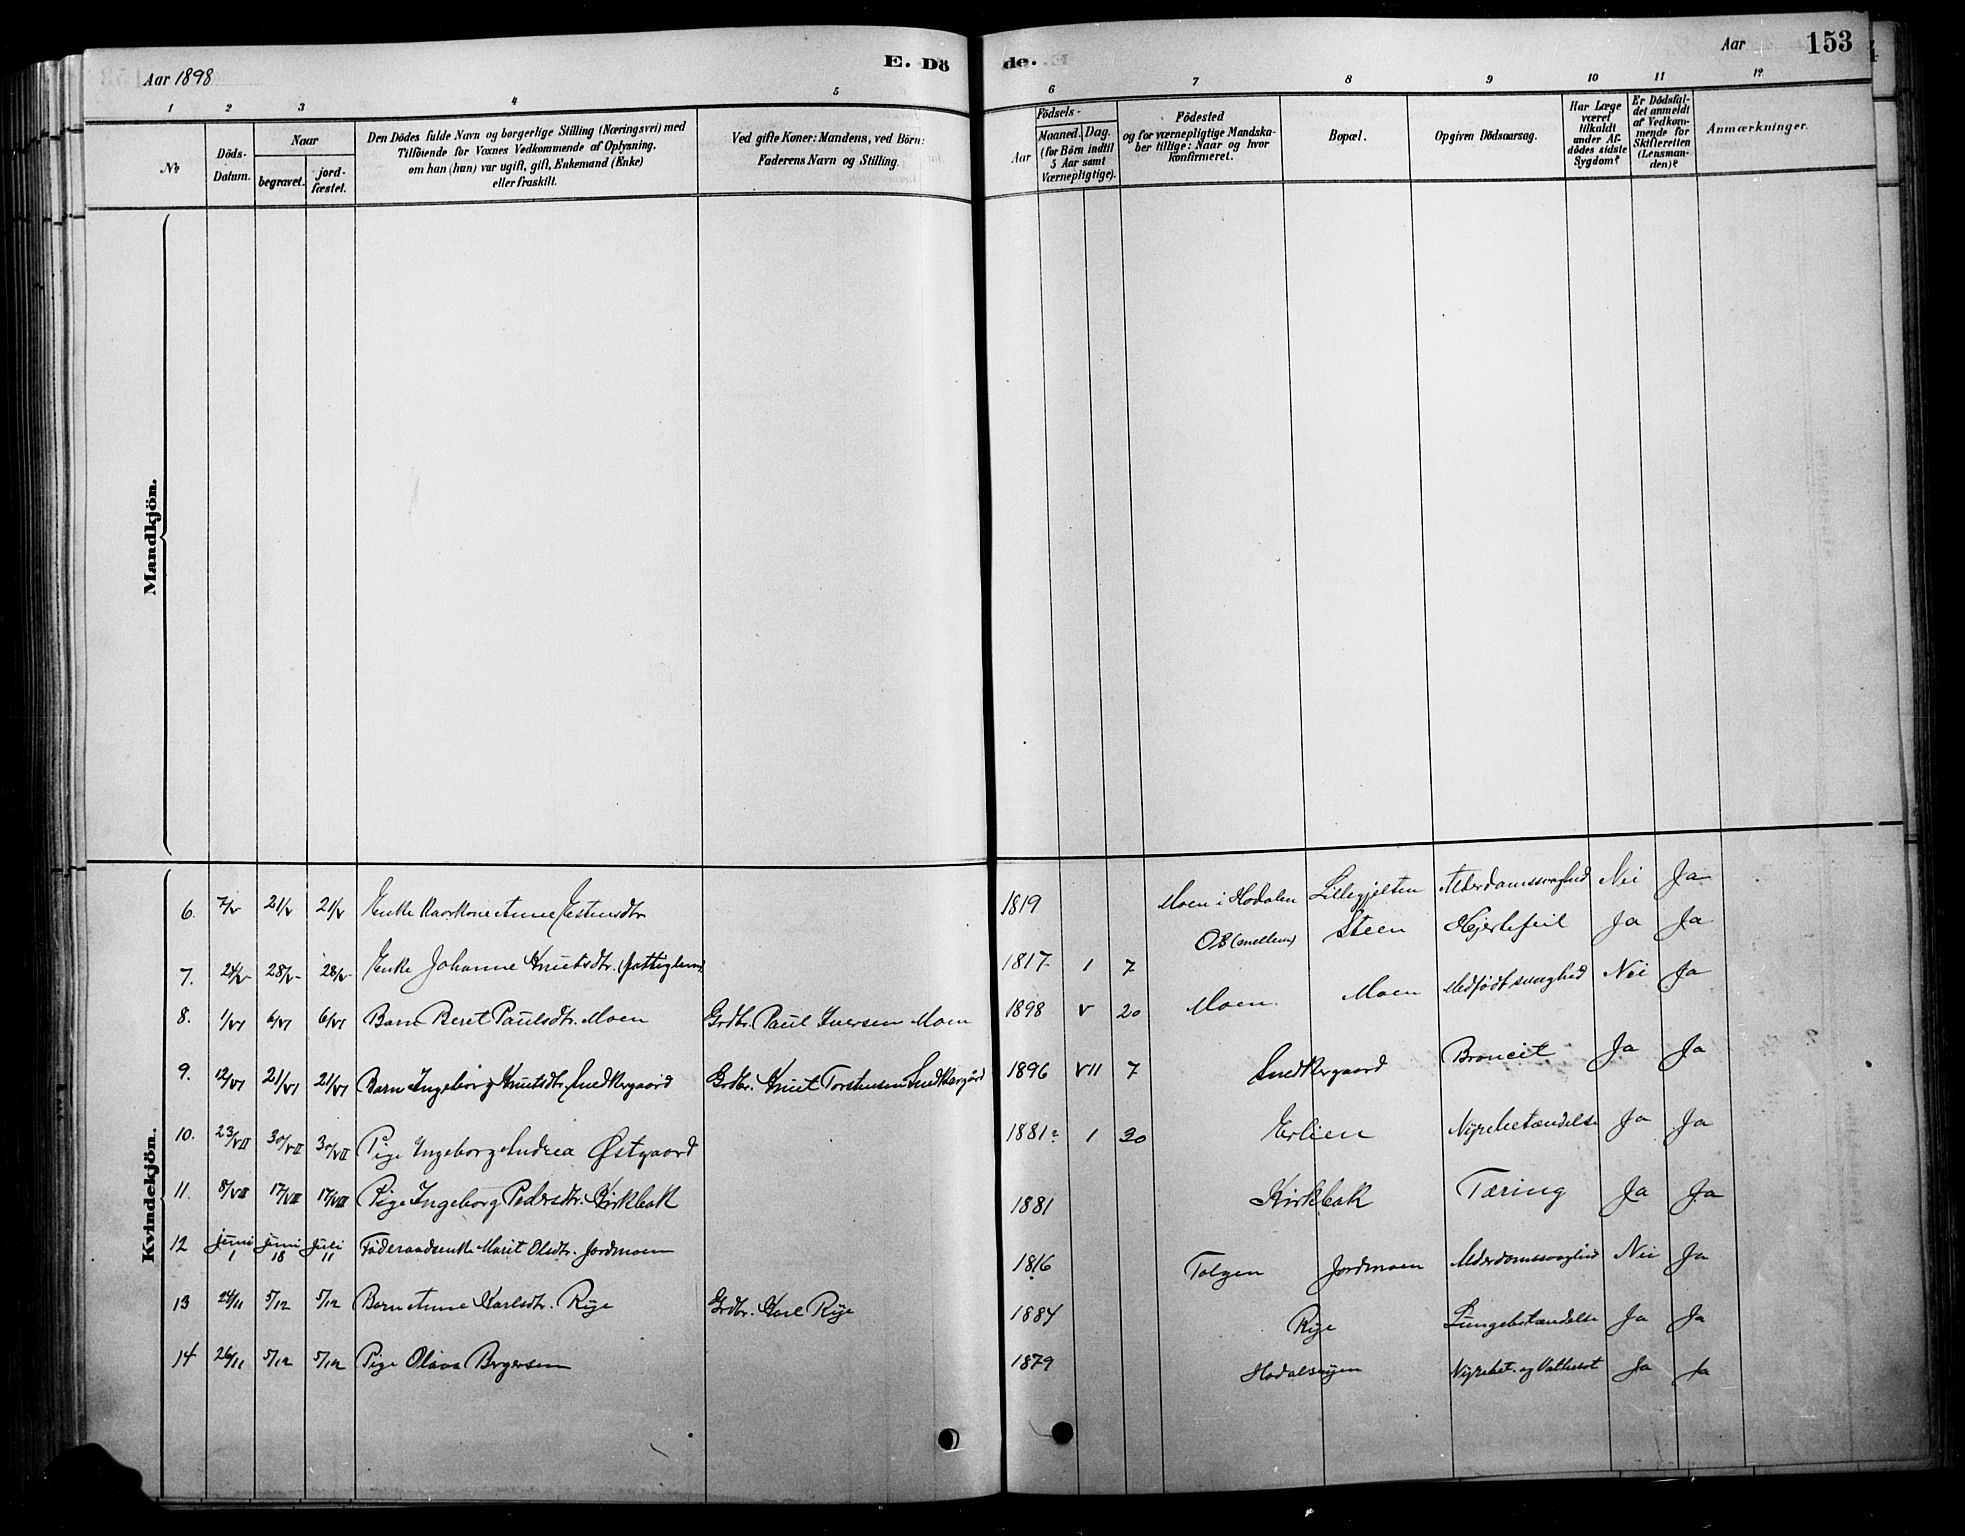 Aar 1898
E. Dö
de.
Aar
153
1 2 3 4 5 6 7 8 9 10 11 12
No
Döds-Datum.
Naar
begravet.
jord-fæstet.
Den Dödes fulde Navn og borgerlige Stilling (Næringsvei) med
Tilföiende for Voxnes Vedkommende af Oplysning.
om han (hun) var ugift, gift, Enkemand (Enke)
eller fraskilt.
Ved gifte Koner: Mandens, ved Börn:
Faderens Navn og Stilling.
Födsels-
Aar
Maaned. Dag.
(for Börn indtil
5 Aar samt
Værnepligtige).
Födested
og for værnepligtige Mandska-
ber tillige: Naar og hvor
konfirmeret.
Bopæl.
Opgiven Dödsaarsag.
Har Læge
været
tilkaldt
under Af-
dödes sidste
Sygdom?
Er Dödsfal-
det anmeldt
af Vedkom-
mende for
Skifteretten
(Lensman-
den)?
Anmærkninger.
Mandkjön.
Kvindekjön.
6. 7/V 21/V 21/V Enke Anne Estensdtr 1819 Moen i Hodalen Lillegjelten Alderdomssvaghed Nei Ja
7. 24/V 28/V 28/V Enke Johanne Knutsdtr. 1817 1 7 Os (mellem) Steen Hjertefeil Ja Ja
8. 1/VI 6/VI 6/VI Barn Beret Paulsdtr. Moen Grdbr. Paul Iversen Moen 1898 V 20 Moen Moen Medfødt svaghed Nei Ja
9. 12/VI 21/VI 21/VI Barn Ingeborg Knutsdtr. Snedkergaard Grdbr. Knut Torstensen Snedkergård 1896 VII 7 Snedkergaard Broncit Ja Ja
10. 23/VII 30/VII 30/VII Pige Ingeborg Andrea Østgaard 1881 1 30 Erlien Nyrebetændelse Ja Ja
11. 8/VIII 17/VIII 17/VIII Pige Ingeborg Pedersdtr. Kirkbak 1881 Kirkbak Tæring Ja Ja
12 juni 1 juni 18 Juli 11 Føderaadsenke Marit Olsdtr. Jordmoen 1816 Tolgen Jordmoen Alderdomssvaghed Nei Ja
13 24/11 5/12 5/12 Barn Anne Karlsdtr. Rye Grdbr. Karl Rye 1884 Rye Lungebetændelse Ja Ja
14 26/11 5/12 5/12 Pige Olava Bergersen 1879 Hodalsøyen Nyrebet. og Vattersot Ja Ja